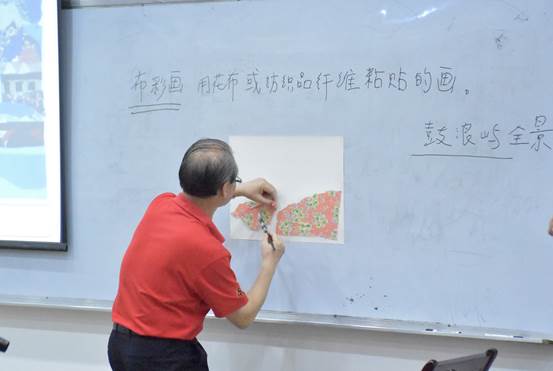 布彩画 用花布或纺织品纤维粘贴的画。
鼓浪屿全景